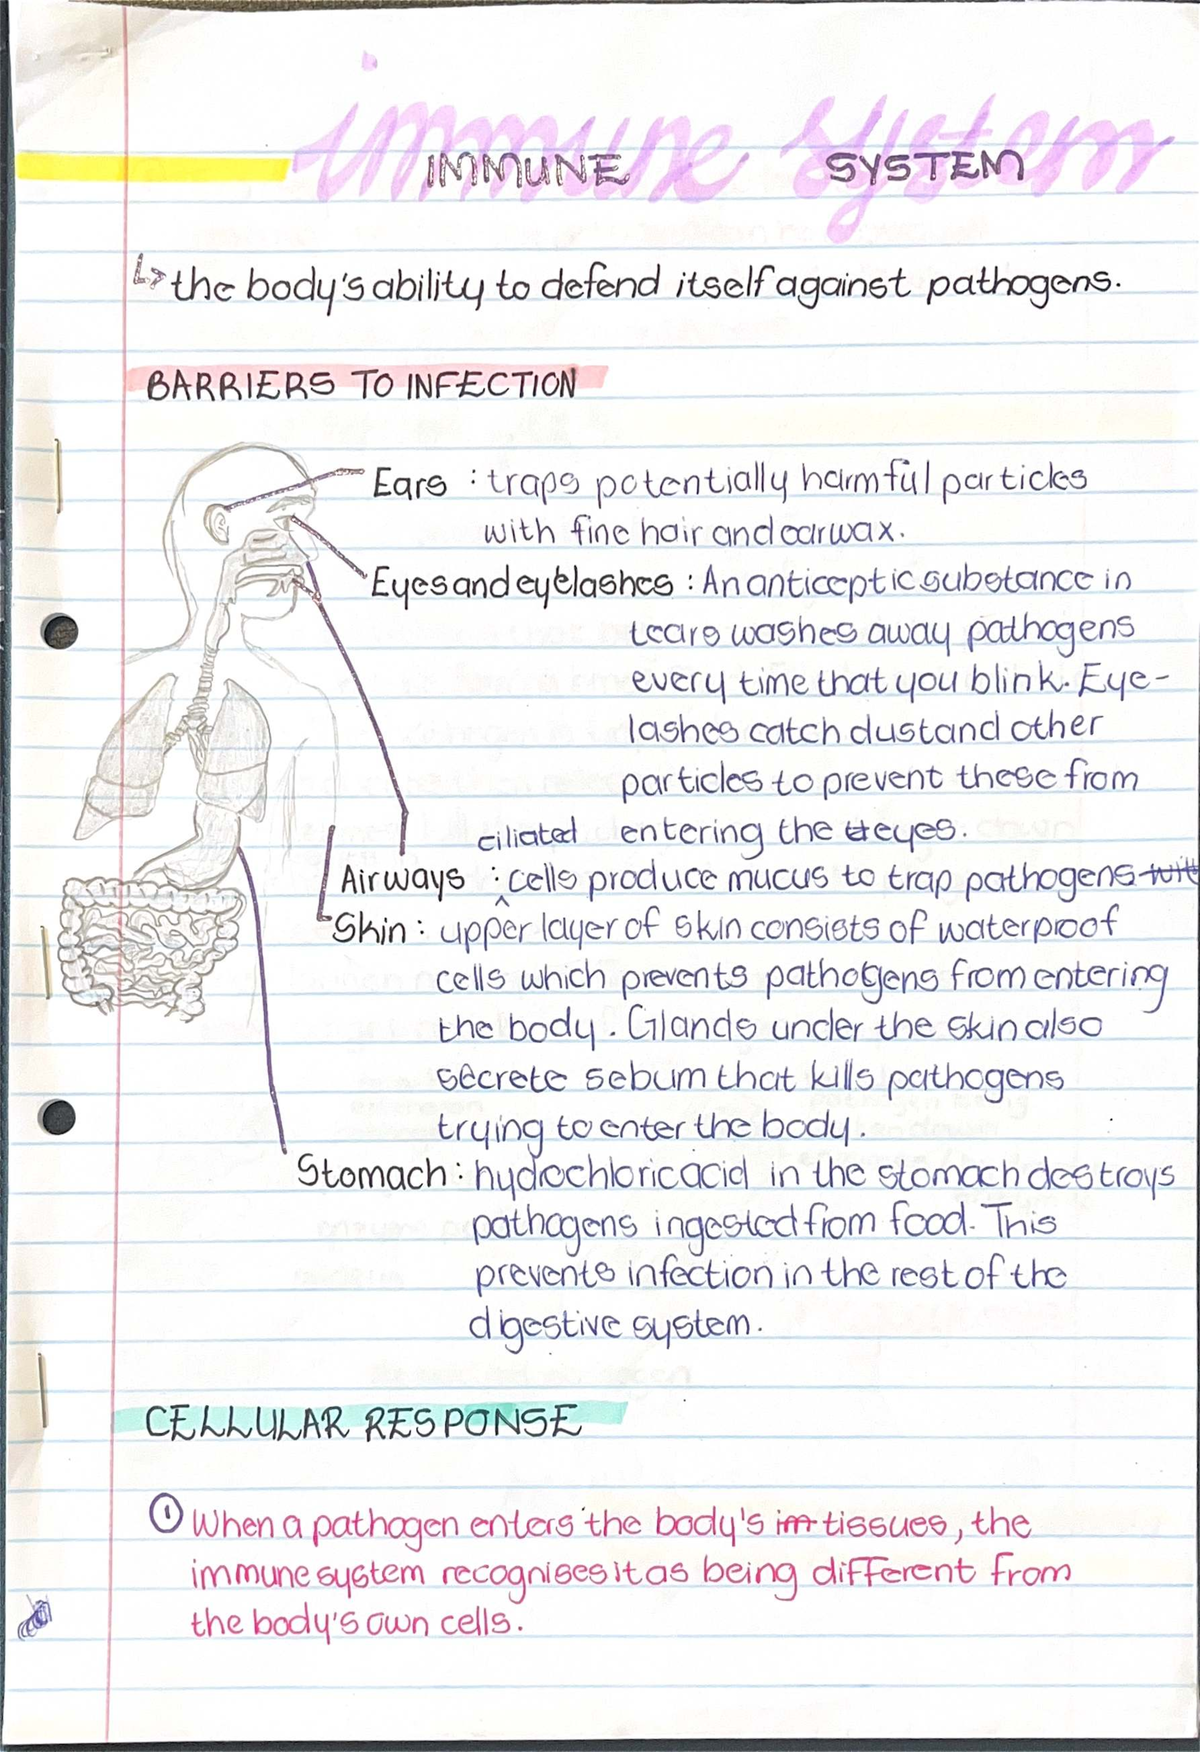 immune system
IMMUNE SYSTEM
↳ the body's ability to defend itself against pathogens.
BARRIERS TO INFECTION
Ears : traps potentially harmful particles
with fine hair and earwax.
Eyes and eyelashes : An anticeptic substance in
tears washes away pathogens
every time that you blink. Eye-
lashes catch dust and other
particles to prevent these from
entering the eyes.
ciliated
Airways : cells produce mucus to trap pathogens
Skin : upper layer of skin consists of waterproof
cells which prevents pathogens from entering
the body. Glands under the skin also
secrete sebum that kills pathogens
trying to enter the body.
Stomach : hydrochloric acid in the stomach destroys
pathogens ingested from food. This
prevents infection in the rest of the
digestive system.
CELLULAR RESPONSE
① When a pathogen enters the body's tissues, the
immune system recognises it as being different from
the body's own cells.